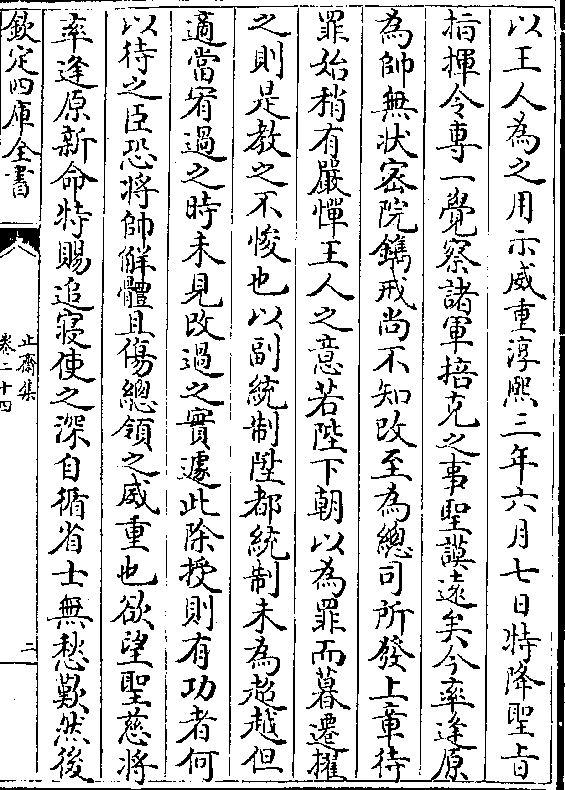 以王人為之用示威重淳熙三年六月七日特降聖旨
指揮令專一覺察諸軍掊克之事聖謨遠矣今率逢原
為帥無狀密院鐫戒尚不知改至為總司所發上章待
罪始稍有嚴憚王人之意若陛下朝以為罪而暮遷擢
之則是教之不悛也以副統制陞都統制未為超越但
適當宥過之時未見改過之實遽此除授則有功者何
以待之臣恐將帥解體且傷總領之威重也欲望聖慈將
率逢原新命特賜追寢使之深自循省士無愁歎然後
欽定四庫全書
止齋集
卷二十四
二